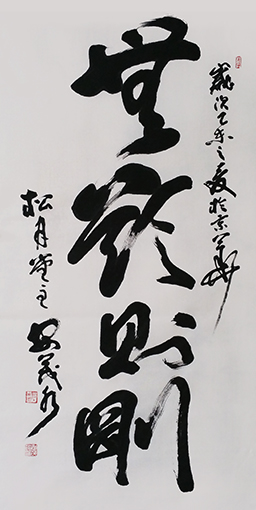 歲次乙未之夏於京華
無欲則剛
松月堂主